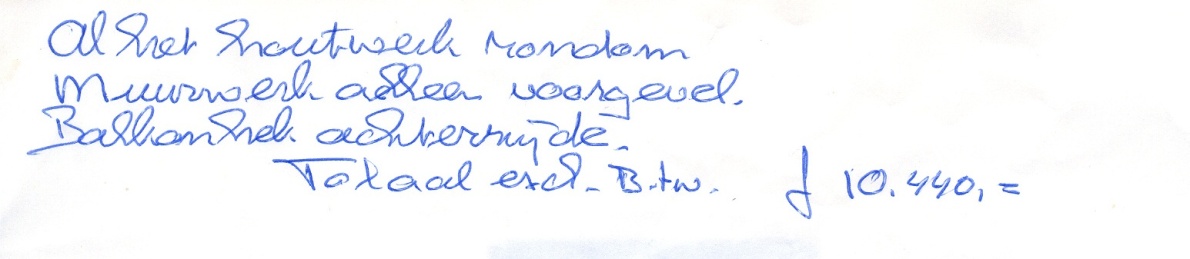 Al het houtwerk rondom
Muurwerk alleen voorgevel.
Balkonhek achterzijde.
Totaal excl. B.t.w. f 10.440,=